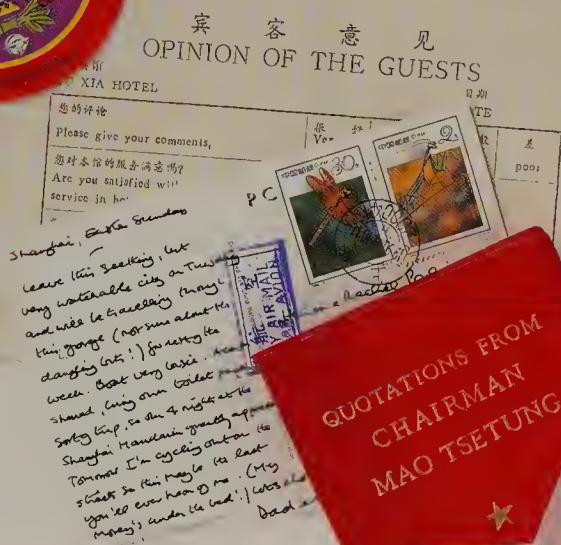 宾客意见
OPINION OF THE GUESTS
XIA HOTEL
日期
TE
您的评论
Please give your comments,
很好
Ver
差
poor
您对本馆的服务满意吗?
Are you satisfied wi
service in ho
PC
30
中国邮政
中国邮政
AIR MAIL
PAR AVION
航空
Shanghai, Easter Sunday
Leave this seething, but
very watchable city on Tuesday
and will be travelling through
this gorge (not sure about the
dangling bits!) for rest of the
week. Boat very basic.
shared, bring own toilet
sort of trip. So my 4 nights at the
Shanghai Mandarin greatly
Tomorrow I'm cycling out on the
streets so this may be the last
you'll ever hear of me. (My
money's under the bed!) Lots
Dad
QUOTATIONS FROM
CHAIRMAN
MAO TSETUNG